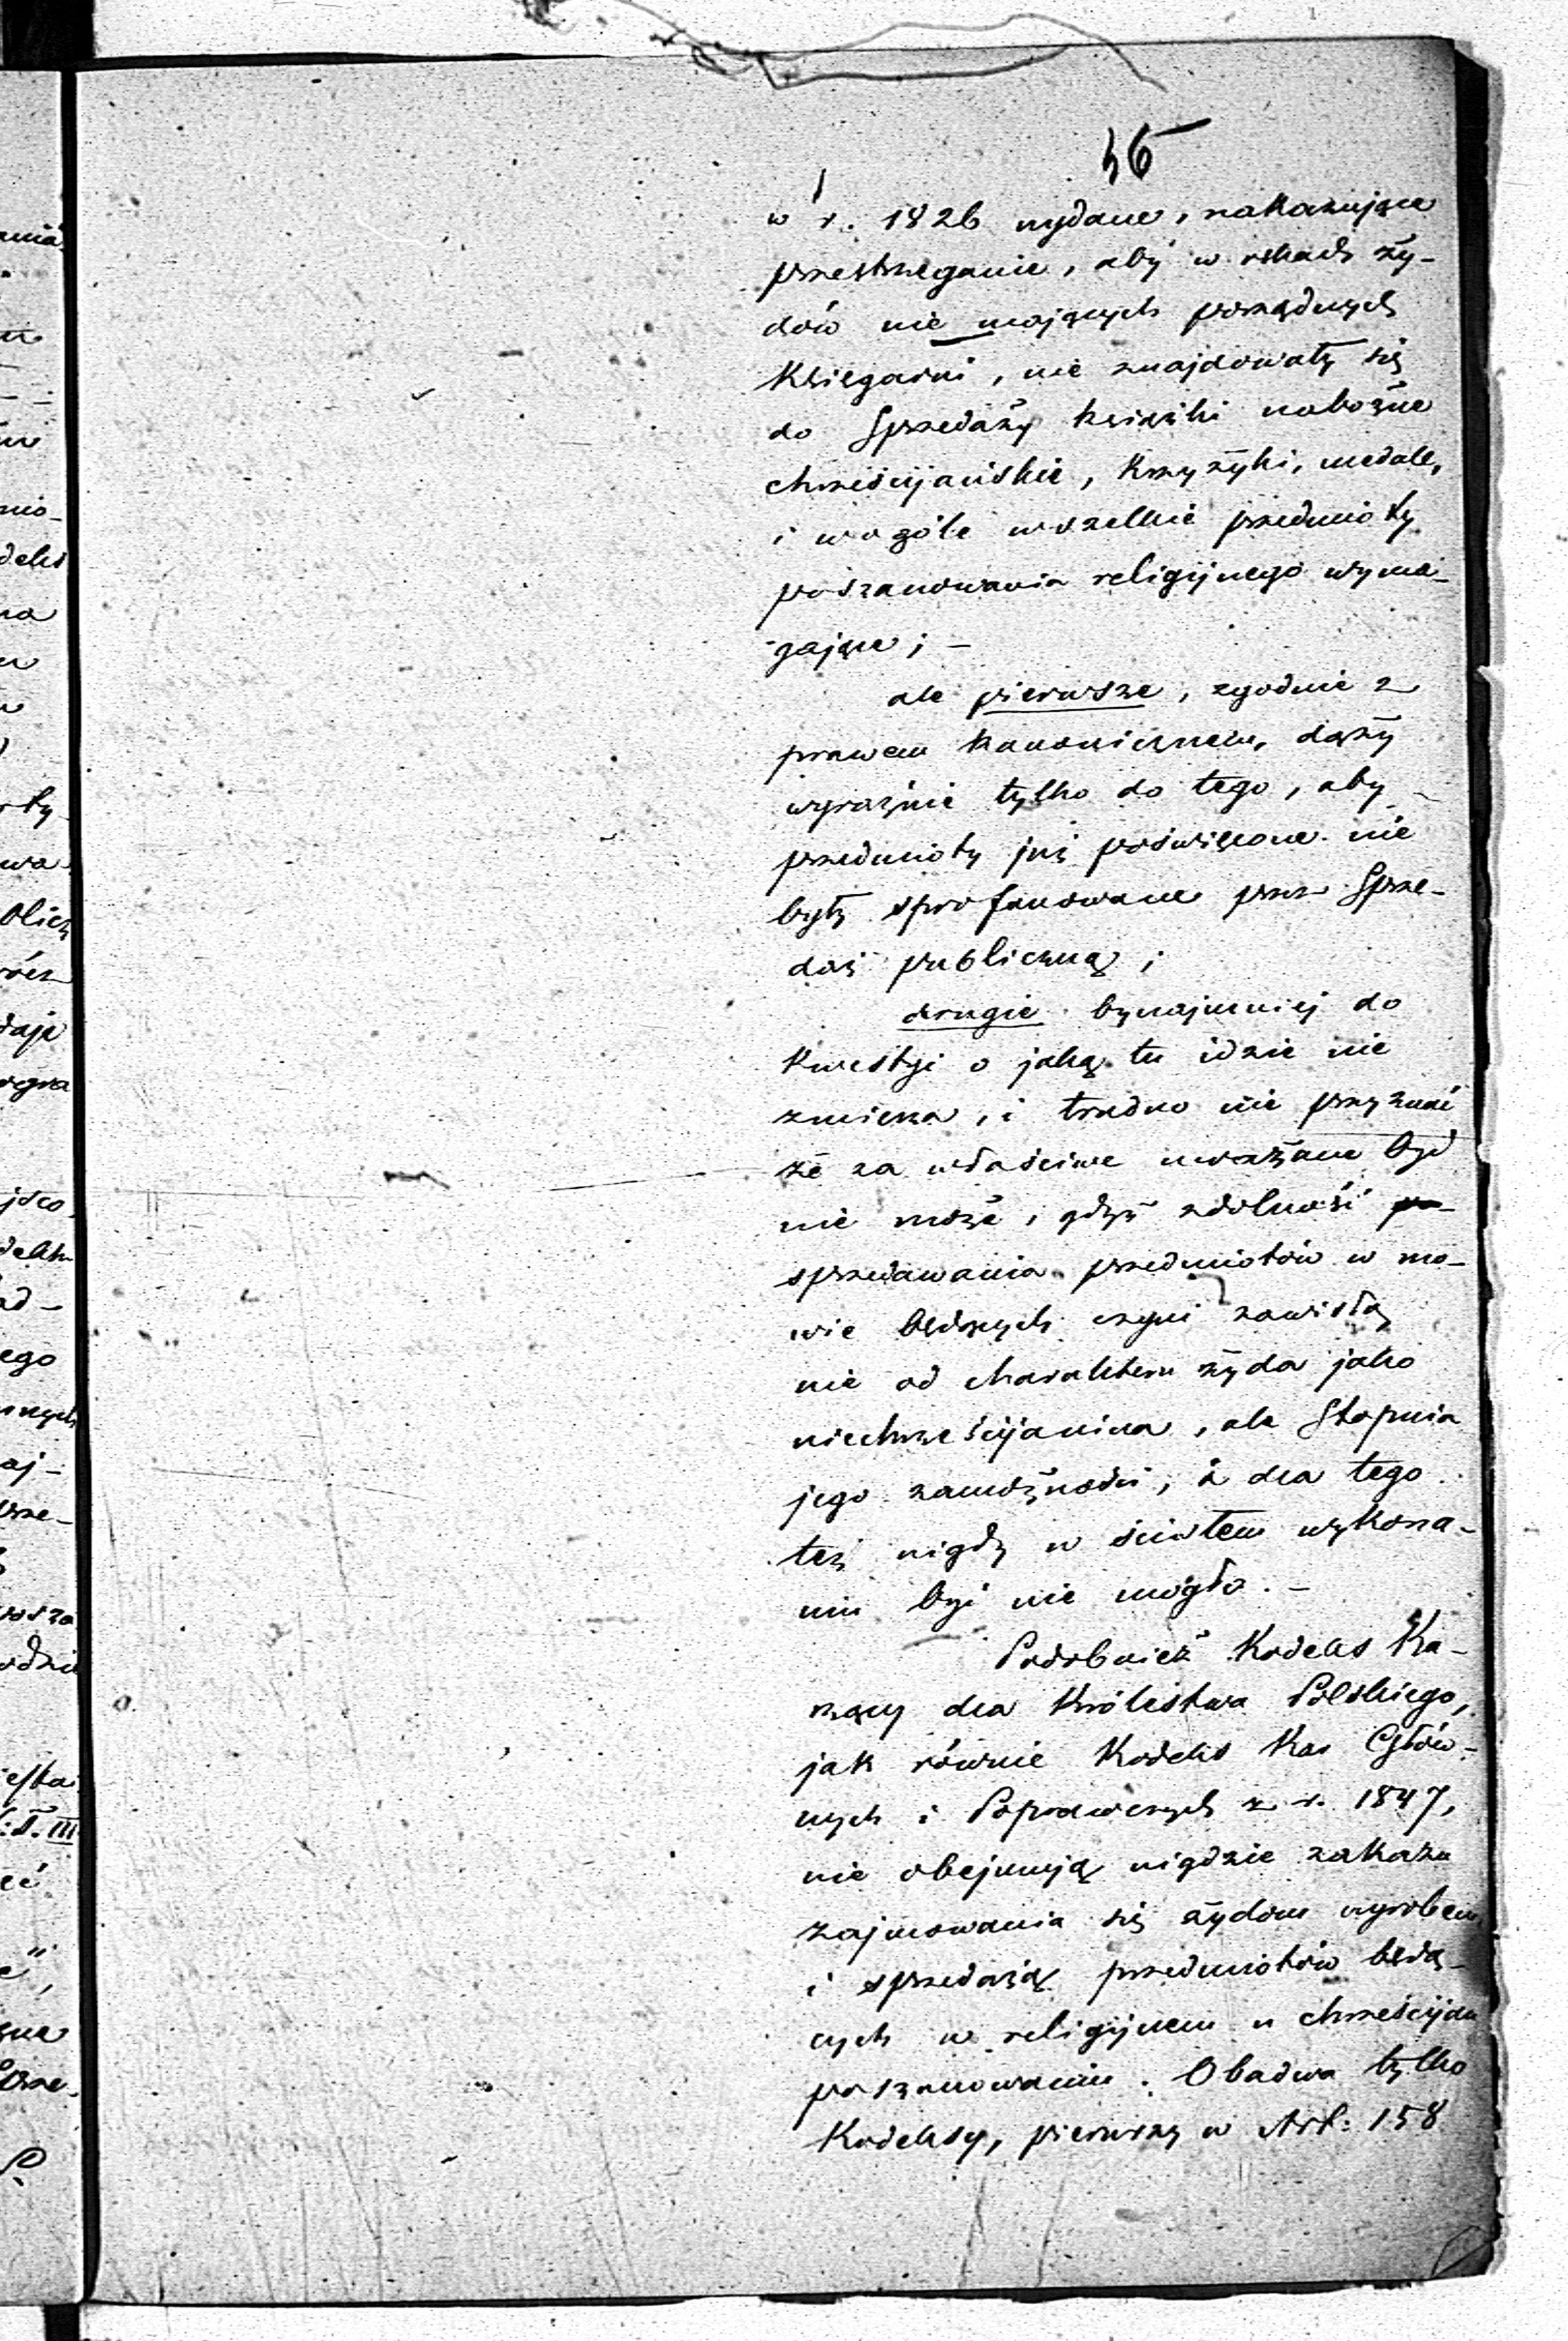 36
w r. 1826 wydane, nakazujące
przestrzeganie, aby w rękach ży-
dów nie mających porządnych
Księgarni, nie znajdowały się
do Sprzedaży książki nabożne
chrześcijańskie, Krzyżyki, medale,
i wogóle wszelkie przedmioty
poszanowania religijnego wyma-
gające; —
ale pierwsze, zgodnie z
prawem kanonicznem, dąży
wyraźnie tylko do tego, aby
przedmioty już poświęcone nie
były sprofanowane przez Sprze-
daż publiczną;
drugie bynajmniej do
Kwestyi o jaką tu idzie nie
zmierza, i trudno nie przyznać
że za właściwe uważane być
nie może, gdyż zdolność
sprzedawania przedmiotów w mo-
wie będących czyni zawisłą
nie od charakteru żyda jako
niechrześcijanina, ale Stopnia
jego zamożności, i dla tego
też nigdy w ścisłem wykona-
niu być nie mogło. —
Podobnież Kodeks Ka-
rzący dla Królestwa Polskiego,
jak równie Kodeks Kar Głów-
nych i Poprawczych z r. 1847,
nie obejmują nigdzie zakazu
zajmowania się żydom wyrobem
i sprzedażą przedmiotów będą-
cych w religijnem u chrześcijan
poszanowaniu. Obadwa tylko
Kodeksy, pierwszy w Art: 158